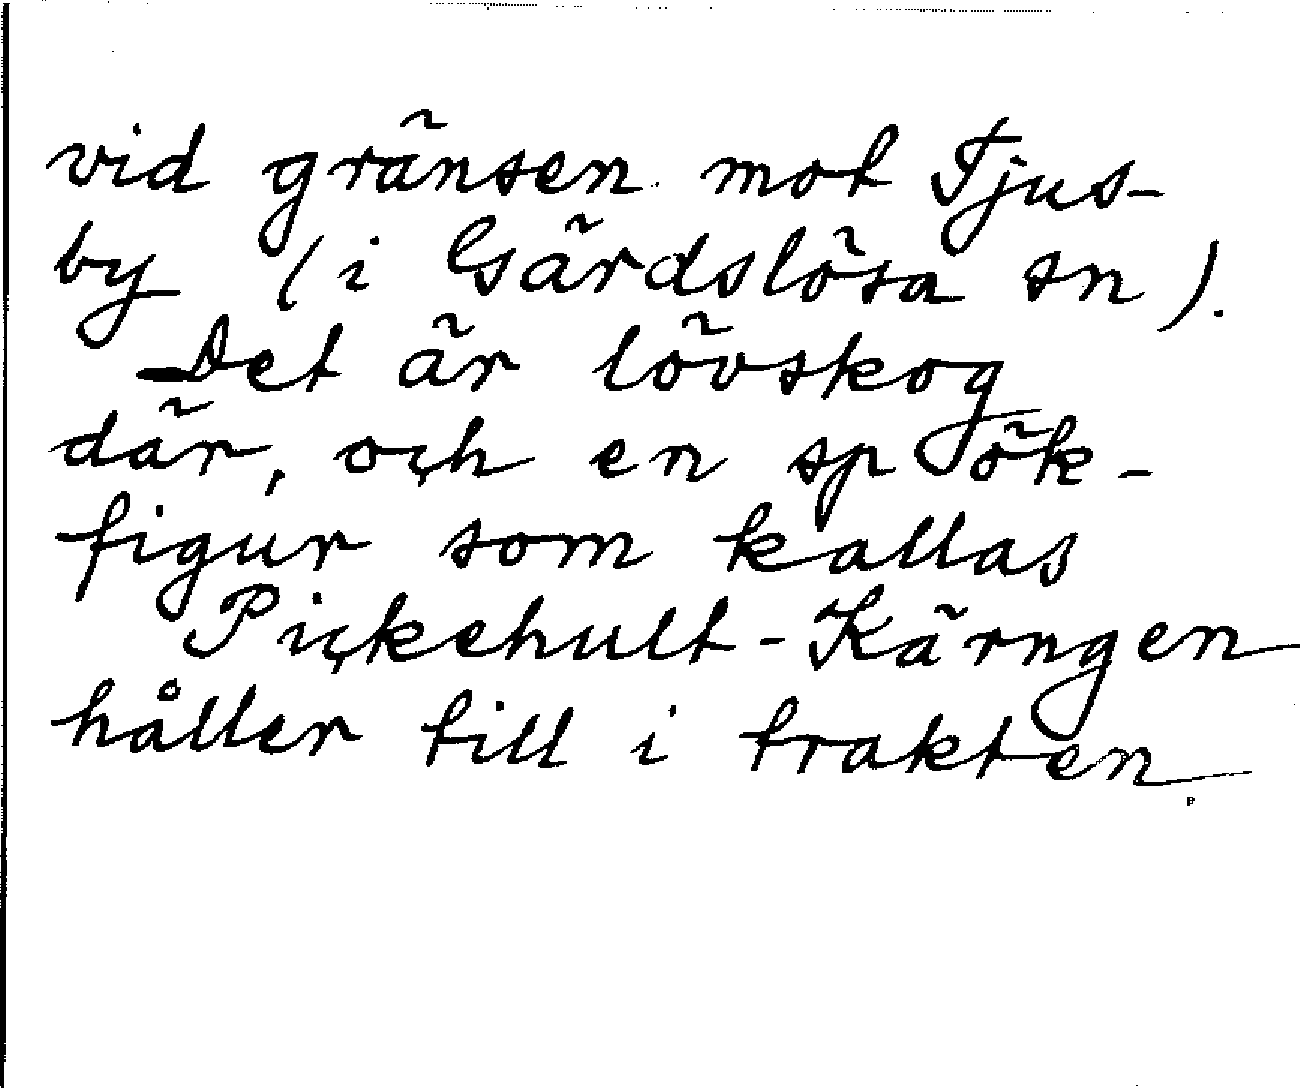 vid gränsen mot Tjus-
by (i Gärdslösa sn).
Det är lövskog
där, och en spök-
figur som kallas
Pickehult-Kärngen
håller till i trakten
P